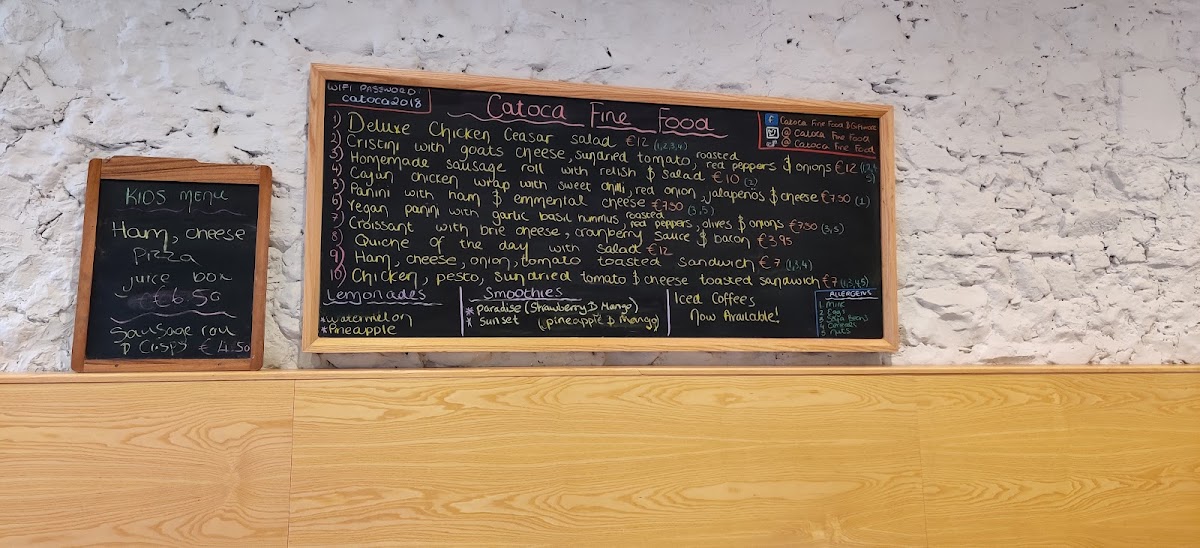 KIDS MENU
Ham, cheese
Pizza
Juice box
€6.50
Sausage roll
& Crispy €4.50
WIFI PASSWORD:
catoca2018
Catoca Fine Food
Catoca Fine Food & Giftware
@ Catoca Fine Food
@ Catoca Fine Food
1) Deluxe Chicken Ceasar salad €12 (1,2,3,4)
2) Cristini with goats cheese, sundried tomato, roasted red peppers & onions €12
3) Homemade sausage roll with relish & salad €10 (2)
4) Cajun chicken wrap with sweet chilli, red onion, jalapenos & cheese €7.50 (1)
5) Panini with ham & emmental cheese €7.50 (3,5)
6) Vegan panini with garlic basil hummus, roasted red peppers, olives & onions €7.50 (3,5)
7) Croissant with brie cheese, cranberry sauce & bacon €3,95
8) Quiche of the day with salad €12
9) Ham, cheese, onion, tomato toasted sandwich €7 (1,3,4)
10) Chicken, pesto, sundried tomato & cheese toasted sandwich €7 (1,3,4,5)
Lemonades
* Watermelon
* Pineapple
Smoothies
* Paradise (Strawberry & Mango)
* Sunset (pineapple & Mango)
Iced Coffees
Now Available!
ALLERGENS
1. Milk
2 Eggs
3 Soja Beans
4 Cereals
5 Nuts